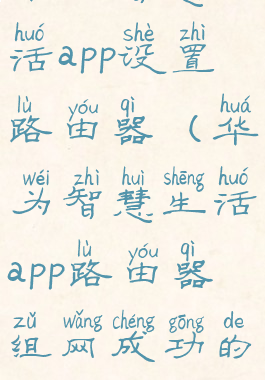 huó shè zhì
活app设置
lù yóu qì huá
路由器（华
wéi zhì huì shēng huó
为智慧生活
lù yóu qì
app路由器
zǔ wǎng chéng gōng de
组网成功的